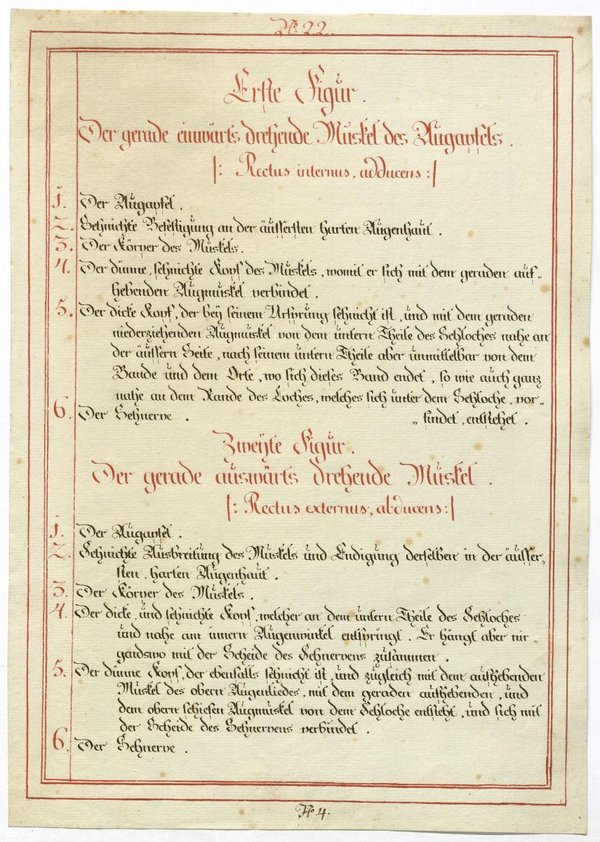 No 22.
Erste Figur.
Der gerade einwärts drehende Muskel des Augapfels.
/: Rectus internus, adducens :/
1. Der Augapfel.
2. Sehnichte Befestigung an der äussersten harten Augenhaut.
3. Der Körper des Muskels.
4. Der dünne, sehnichte Kopf des Muskels, womit er sich mit dem geraden auf-
hebenden Augmuskel verbindet.
5. Der dicke Kopf, der bey seinem Ursprung sehnicht ist, und mit dem geraden
niederziehenden Augmuskel von dem untern Theile des Sehloches nahe an
der äussern Seite, nach seinem untern Theile aber unmittelbar von dem
Bande und dem Orte, wo sich dieses Band endet, so wie auch ganz
nahe an dem Rande des Loches, welches sich unter dem Sehloche, vor-
6. Der Sehnerve. „ findet, entstehet.
Zweyte Figur.
Der gerade auswärts drehende Muskel.
/: Rectus externus, abducens :/
1. Der Augapfel.
2. Sehnichte Ausbreitung des Muskels und Endigung derselben in der äusser-
sten, harten Augenhaut.
3. Der Körper des Muskels.
4. Der dicke, und sehnichte Kopf, welcher an dem untern Theile des Sehloches
und nahe am innern Augenwinkel entspringt. Er hängt aber nir-
gendswo mit der Scheide des Sehnervens zusammen.
5. Der dünne Kopf, der ebenfalls sehnicht ist, und zugleich mit dem aufhebenden
Muskel des obern Augenliedes, mit dem geraden aufhebenden, und
dem obern schiefen Augmuskel von dem Sehloche entsteht, und sich mit
der Scheide des Sehnervens verbindet.
6. Der Sehnerve.
No 4.